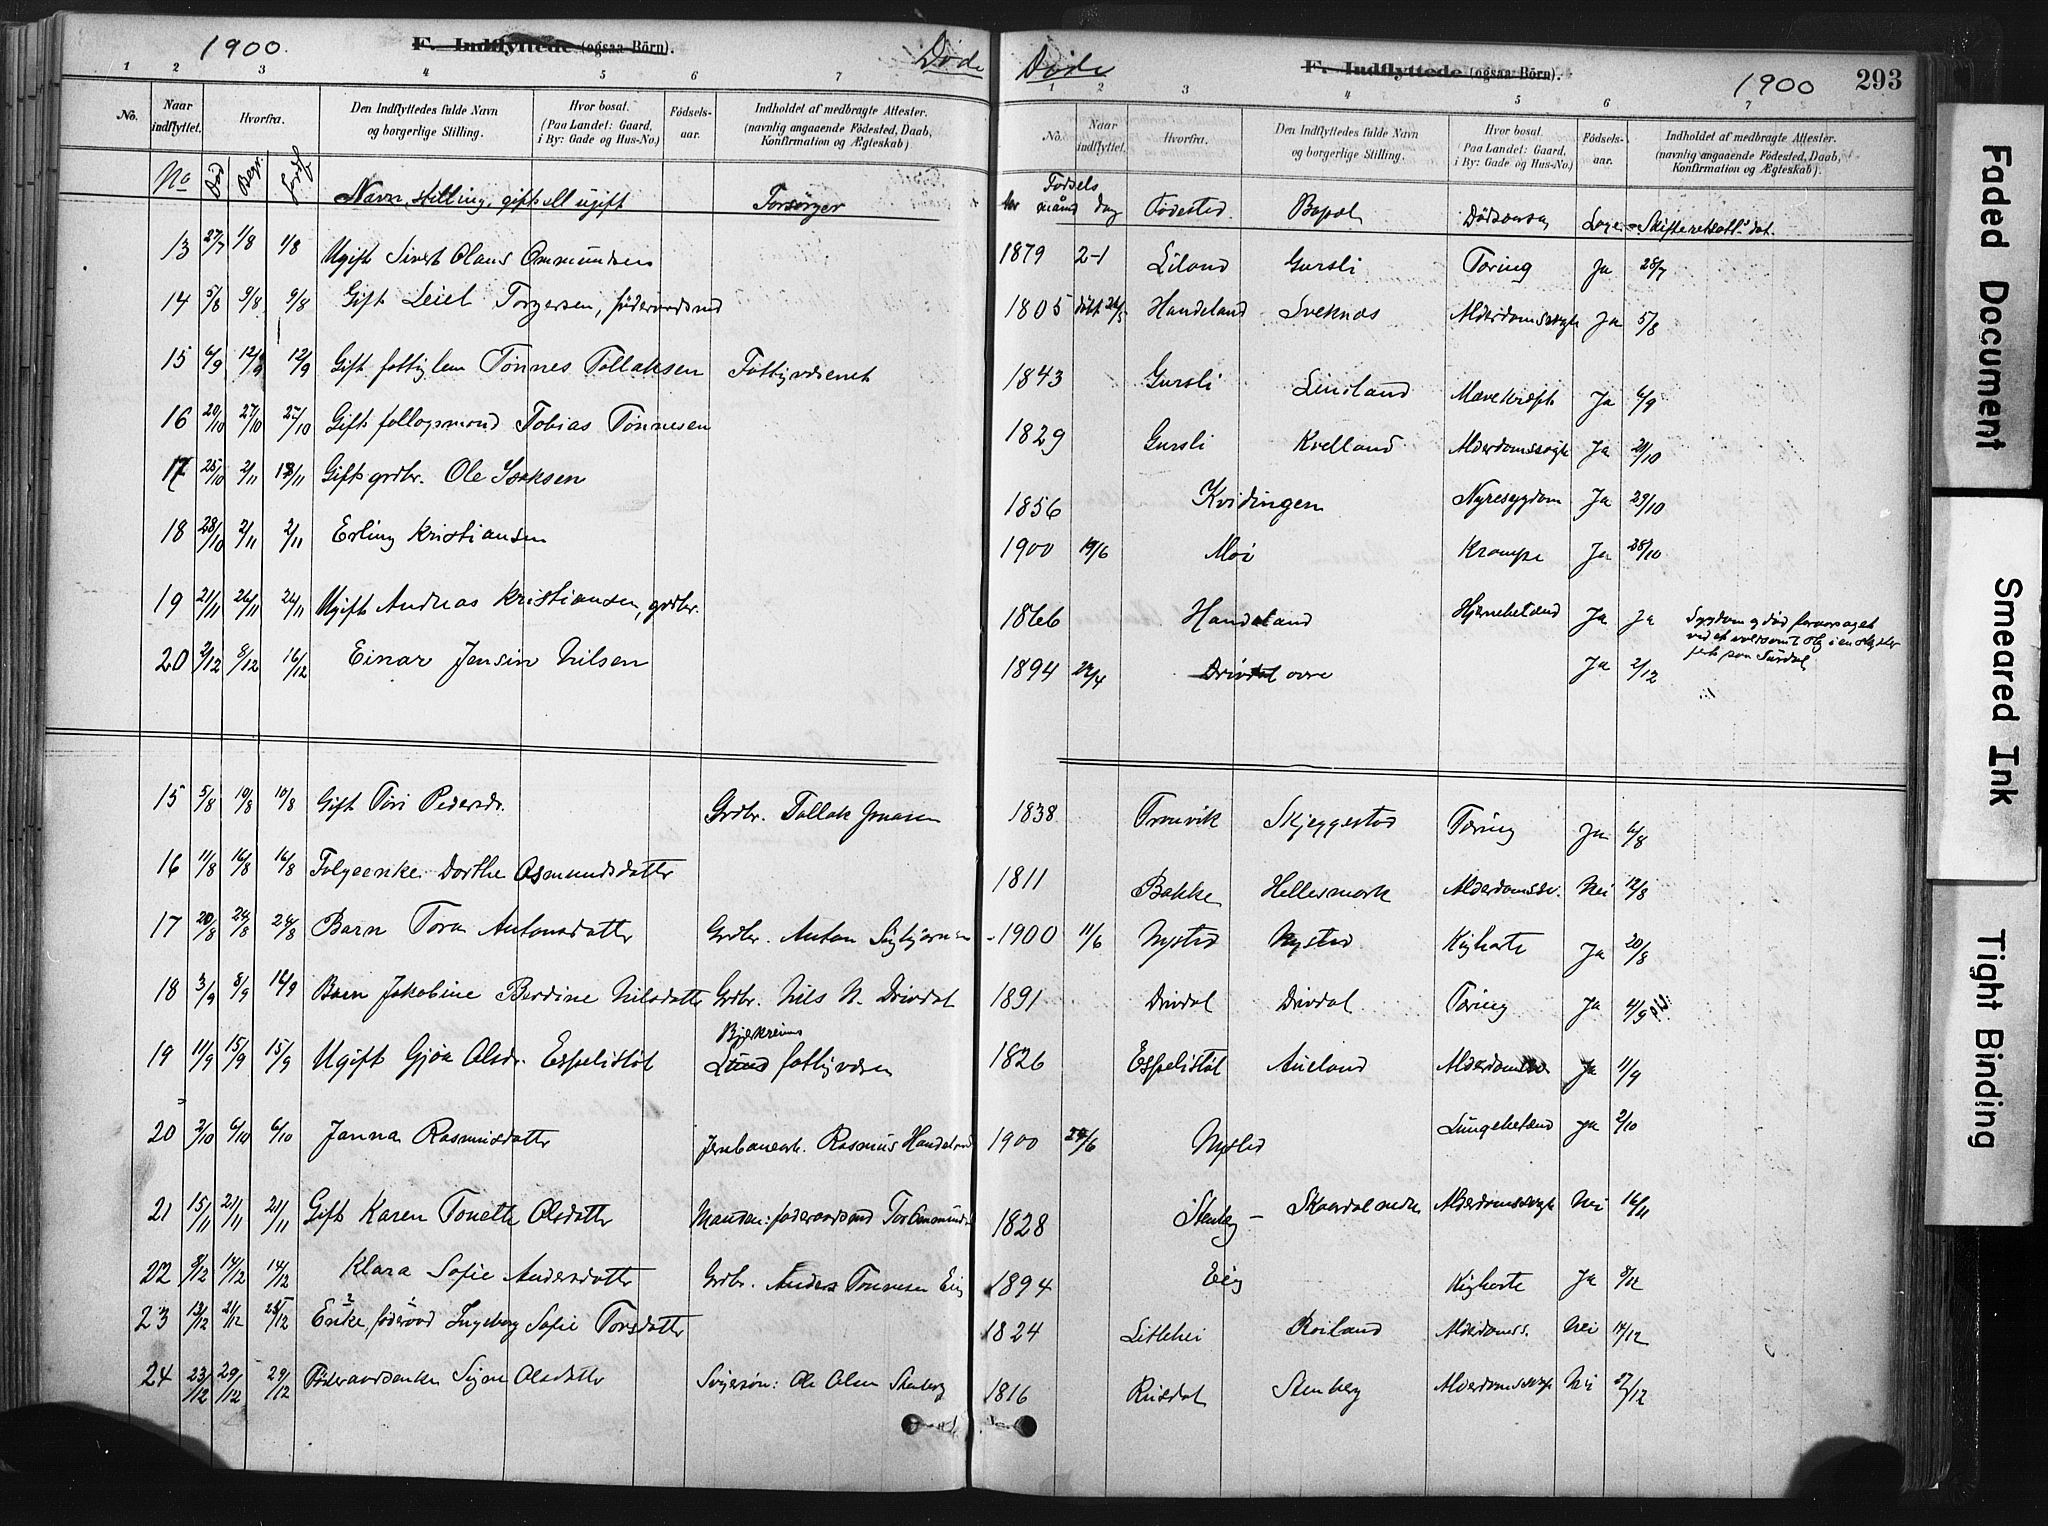 1900.
F. Indflyttede (ogsaa Börn).
Døde
1 2 3 4 5 6 7
No.
Naar indflyttet.
Hvorfra.
Den Indflyttedes fulde Navn og borgerlige Stilling.
Hvor bosat. (Paa Landet: Gaard, i By: Gade og Hus-No.)
Fødsels-aar.
Indholdet af medbragte Attester. (navnlig angaaende Fødested, Daab, Konfirmation og Ægteskab)
No Død Begr. Navn, stilling, gift ell ugift Forsørger
13 27/7 1/8 1/8 Ugift Sivert Olaus Ommundsen
14 5/8 9/8 9/8 Gift Leiel Torgersen,
15 6/9 12/9 12/9 Gift fattiglem Tønnes Tollaksen Fattigvæsenet
16 20/10 27/10 27/10 Gift Tobias Tønnesen
17 25/10 2/11 Gift grdbr. Ole Isaksen
18 28/10 2/11 2/11 Erling Kristiansen
19 21/11 26/11 26/11 Ugift Andreas Kristiansen, grdbr.
20 2/12 8/12 16/12 Einar Jensin Nilsen
15 5/8 10/8 10/8 Gift Tori Pedersdr. Grdbr. Tollak Jonasen
16 11/8 16/8 16/8 Dorthe Osmundsdatter
17 20/8 24/8 24/8 Barn Tora Antonsdatter Grdbr. Anton
18 3/9 8/9 14/9 Barn Jakobine Berdine Nilsdatter Grdbr. Nils N. Drivdal
Bjerkreims
19 11/9 15/9 15/9 Ugift Gjøa Olsdr. Espelistøl Lund fattigvæsen
20 2/10 6/10 6/10 Janna Rasmusdatter Jernbanearb. Rasmus Handeland
21 15/11 21/11 21/11 Gift Karen Tonette Olsdatter Manden: føderaadsmd
22 8/12 14/12 14/12 Klara Sofie Andersdatter Grdbr. Anders Tønnesen Eig
23 13/12 21/12 Enke, føderaad Ingeborg Sofie Torsdatter
24 23/12 29/12 29/12 Føderaadsenke Signe Olsdatter Svigersøn: Ole Olsen Stenberg
Døde
F. Indflyttede (ogsaa Börn).
1900
293
1 2 3 4 5 6 7
No.
Naar indflyttet.
Hvorfra.
Den Indflyttedes fulde Navn og borgerlige Stilling.
Hvor bosat. (Paa Landet: Gaard, i By: Gade og Hus-No.)
Fødsels-aar.
Indholdet af medbragte Attester. (navnlig angaaende Fødested, Daab, Konfirmation og Ægteskab.)
Fødsels
aar maaned dag Fødested Bopæl Dødsaarsag Læge Skifteretsatt. dat.
1879 2-1 Liland Gursli Tæring Ja 28/7
1805 døbt 26/5 Handeland Sveknes Alderdomssvagh Ja 5/8
1843 Gursli Linland Mavekræft Ja 6/9
1829 Gursli Kvelland Alderdomssvagh Ja 20/10
1856 Kvidingen Nyresygdom Ja 29/10
1900 19/6 Moi Krampe Ja 28/10
1866 Handeland Hjernebetænd Ja Ja Sygdom og død foraarsaget
1894 22/4 Drivdal øvre Ja 2/12
1838 Tronvik Skjeggestad Tæring Ja 6/8
1811 Bakke Hellesmork Alderdomssv. Nei 12/8
1900 11/6 Nysted Nysted Kighoste Ja 20/8
1891 Drivdal Drivdal Tæring Ja 4/9
1826 Espelistøl Aueland Ja 11/9
1900 Nysted Lungebetænd Ja 2/10
1828 Stenberg Skaardal nedre Alderdomssvagh Nei 16/11
1894 Eig Kighoste Ja 8/12
1824 Litlehei Roiland Alderdomss. Nei 14/12
1816 Ruisdal Stenberg Alderdomssvagh Nei 27/12
Faded Document
Smeared Ink
Tight Binding